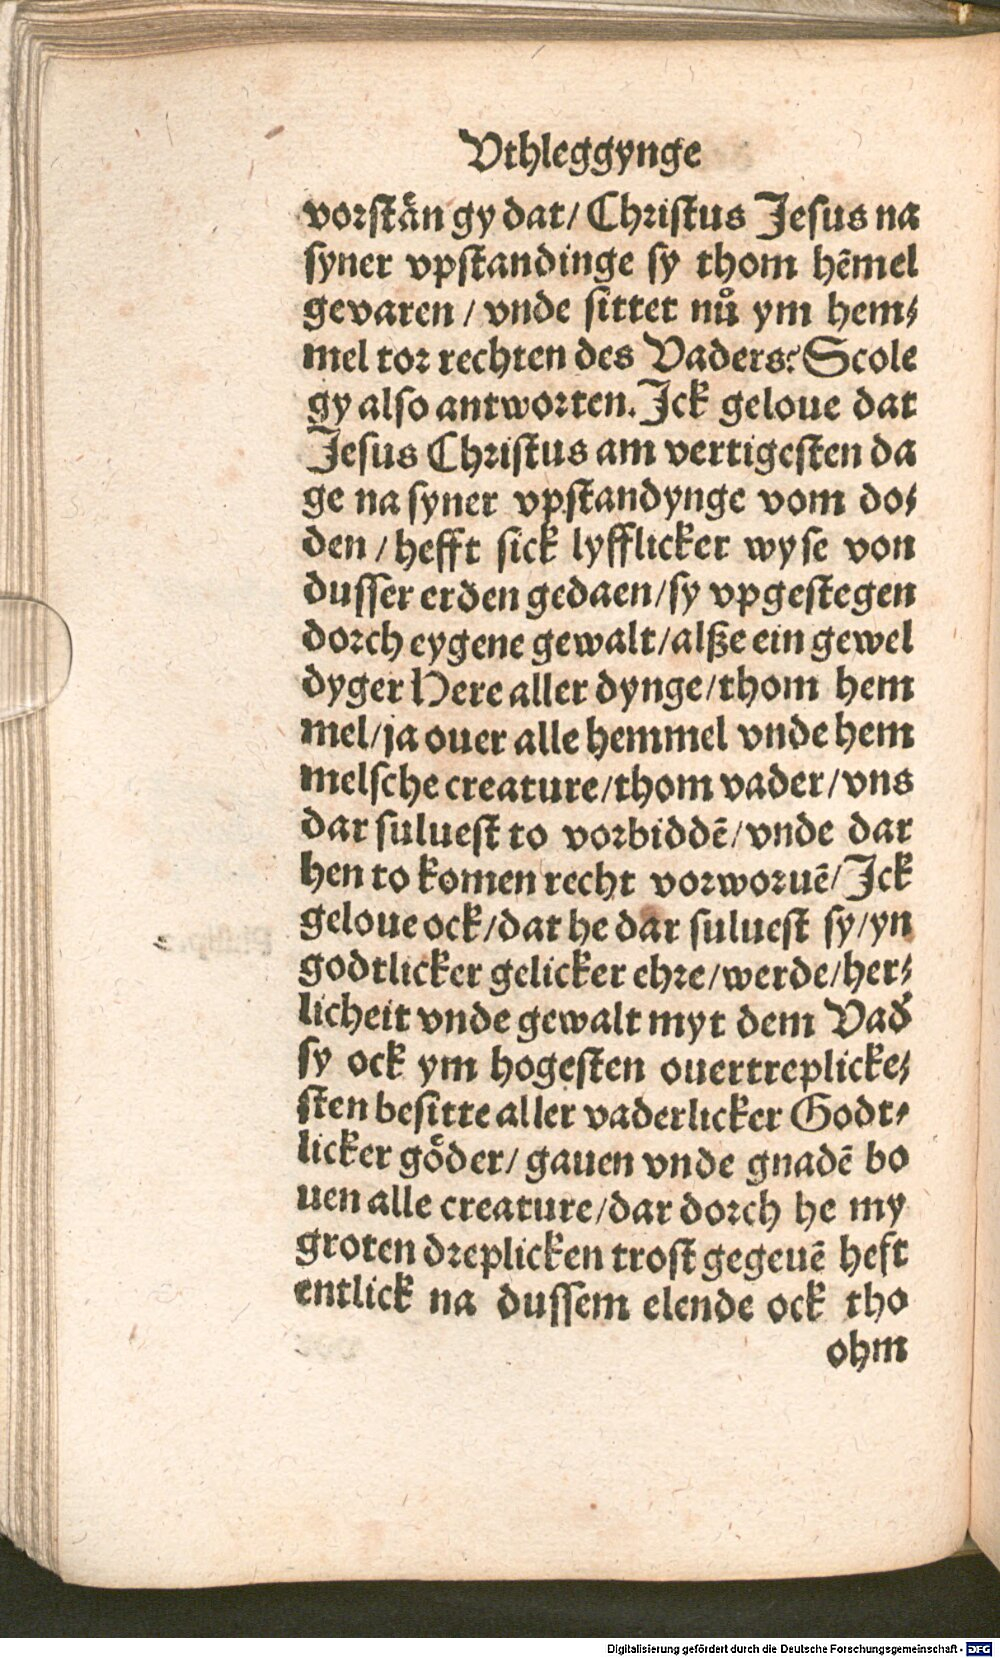 Vthleggynge
vorstån gy dat/ Christus Jesus na
syner vpstandinge sy thom hēmel
gevaren / vnde sittet nů ym hem⸗
mel tor rechten des Vaders? Scole
gy also antworten. Jck geloue dat
Jesus Christus am vertigesten da
ge na syner vpstandynge vom do⸗
den / hefft sick lyfflicker wyse von
dusser erden gedaen/ sy vpgestegen
dorch eygene gewalt/ alße ein gewel
dyger Here aller dynge/ thom hem
mel/ ja ouer alle hemmel vnde hem
melsche creature/ thom vader/ vns
dar suluest to vorbiddē/ vnde dar
hen to komen recht vorworuē/ Jck
geloue ock/ dat he dar suluest sy/ yn
godtlicker gelicker ehre/ werde/ her⸗
licheit vnde gewalt myt dem Vad̛
sy ock ym hogesten ouertreplicke⸗
sten besitte aller vaderlicker Godt⸗
licker gőder/ gauen vnde gnadē bo
uen alle creature/ dar dorch he my
groten dreplicken trost gegeuē heft
entlick na dussem elende ock tho
ohm
Digitalisierung gefördert durch die Deutsche Forschungsgemeinschaft - DFG